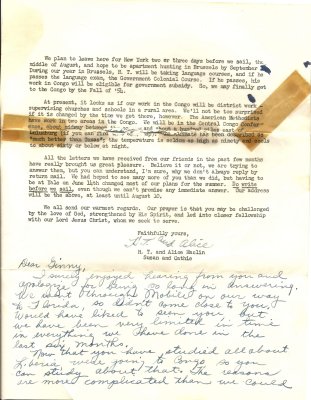 We plan to leave here for New York two or three days before we sail, the
middle of August, and hope to be apartment hunting in Brussels by September
During our year in Brussels, H. T. will be taking language courses, and if he
passes the language exam, the Government Colonial Course. If he passes, his
work in Congo will be eligible for government subsidy. So, we may finally get
to the Congo by the Fall of '54.
At present, it looks as if our work in the Congo will be district work -
supervising churches and schools in a rural area. We'll not be too surprised
if it is changed by the time we get there, however. The American Methodists
have work in two areas in the Congo. We will be in the Central Congo Confer-
ence, about midway between and about a hundred miles east
if you can find it The climate has been described as
much better than Texas' the temperature is seldom as high as ninety and cools
to about sixty or below at night.
All the letters we have received from our friends in the past few months
have really brought us great pleasure. Believe it or not, we are trying to
answer them, but you can understand, I'm sure, why we don't always reply by
return mail. We had hoped to see many more of you than we did, but having to
be at Yale on June 14th changed most of our plans for the summer. Do write
before we sail, even though we can't promise any immediate answer. Our address
will be the above, at least until August 10.
We all send our warmest regards. Our prayer is that you may be challenged
by the love of God, strengthened by His Spirit, and led into closer fellowship
with our Lord Jesus Christ, whom we seek to serve.
Faithfully yours,
H.T. and Alice
H. T. and Alice Maclin
Susan and Cathie
Dear Ginny,
I surely enjoyed hearing from you and
apologize for being so long in answering.
We went through Mobile on our way
to Florida, so didn't come close to you.
Would have liked to seen you, but
we have been very limited in time
in everything we have done in the
last six months.
Now that you have studied all about
Liberia, we're going to Congo so you
can study about that. The reasons
are more complicated than we could